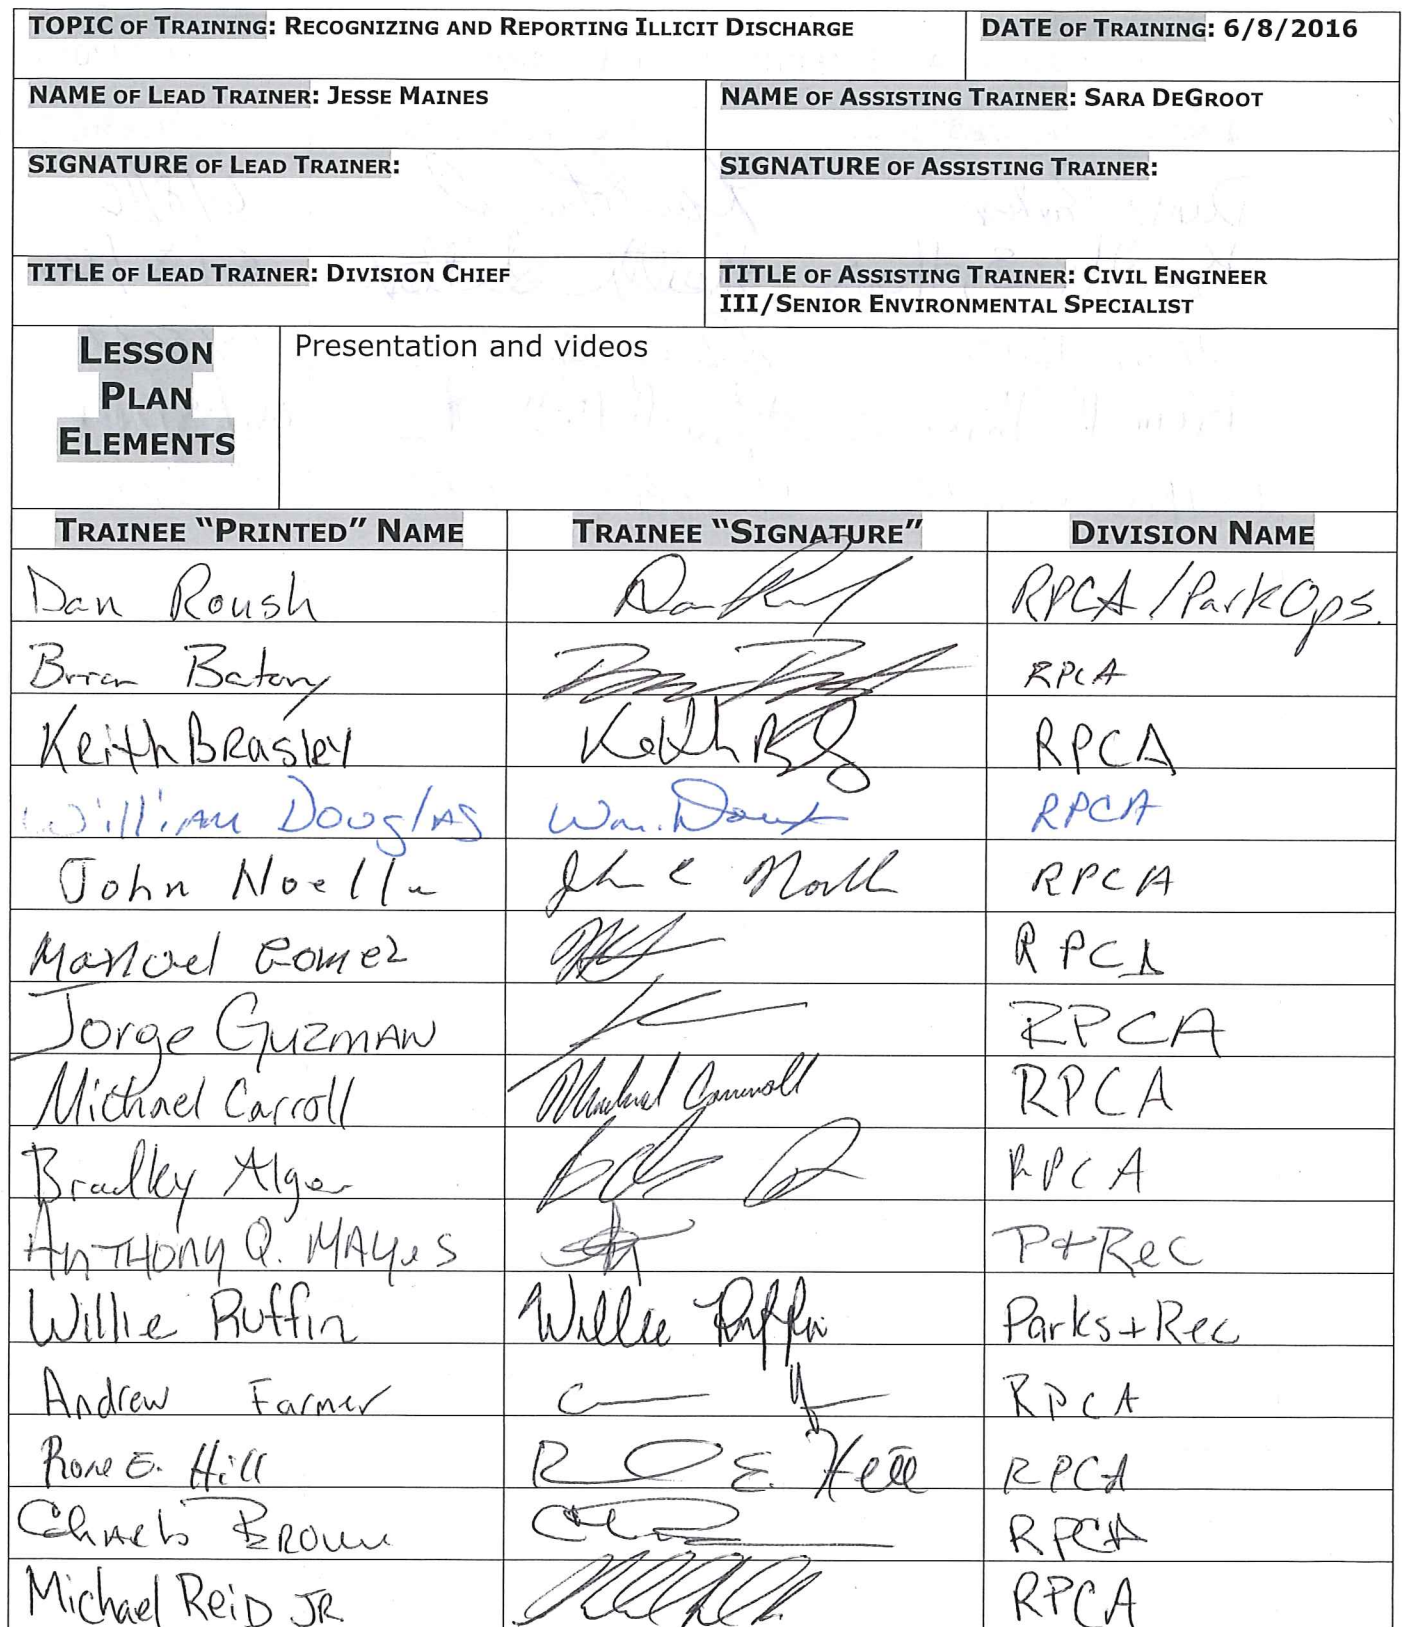 TOPIC OF TRAINING: RECOGNIZING AND REPORTING ILLICIT DISCHARGE
DATE OF TRAINING: 6/8/2016
NAME OF LEAD TRAINER: JESSE MAINES
NAME OF ASSISTING TRAINER: SARA DEGROOT
SIGNATURE OF LEAD TRAINER:
SIGNATURE OF ASSISTING TRAINER:
TITLE OF LEAD TRAINER: DIVISION CHIEF
TITLE OF ASSISTING TRAINER: CIVIL ENGINEER
III/SENIOR ENVIRONMENTAL SPECIALIST
LESSON
PLAN
ELEMENTS
Presentation and videos
TRAINEE "PRINTED" NAME TRAINEE "SIGNATURE" DIVISION NAME
Dan Roush RPCA/Park Ops.
Brian Batory RPCA
Keith BRasley Keith RPCA
William Douglas Wm. RPCA
John Noelle John C RPCA
Manuel Gomez RPCA
Jorge GUZMAN RPCA
Michael Carroll Michael Carroll RPCA
Bradley Alger RPCA
ANTHONY Q. MAYES P+Rec
Willie Ruffin Willie Ruffin Parks+Rec
Andrew Farmer RPCA
E. Hill E. Hill RPCA
BROWN RPCA
Michael ReiD JR RPCA